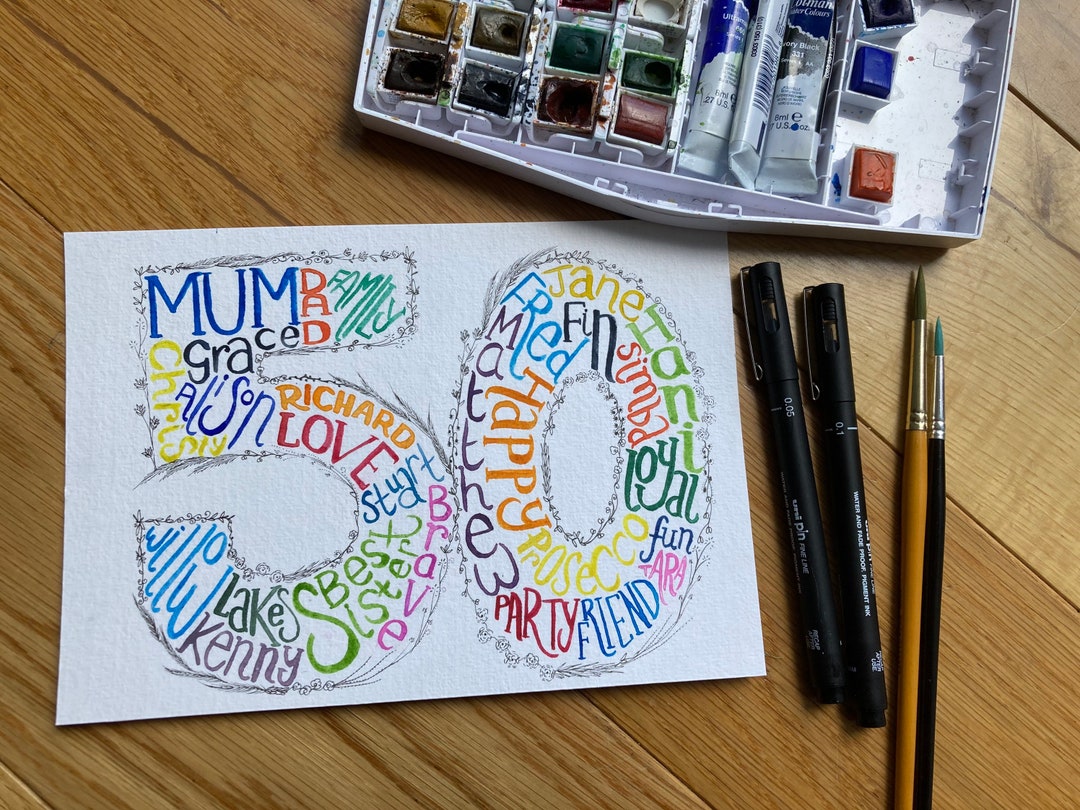 MUM
DAD
FAMILY
graced
Christy
Alison
RICHARD
LOVE
Stuart
Brave
Best
Sister
Willow
Lakes
Kenny
Jane
Fred
Fin
Hani
Simba
Matthew
Happy
Loyal
PROSECCO
fun
TARA
PARTY
FRIEND
Ivory Black
331
8ml e
.27 U.S.
U.S. oz.
0.05
uni pin FINE LINE
0.1
WATER AND FADE PROOF, PIGMENT INK